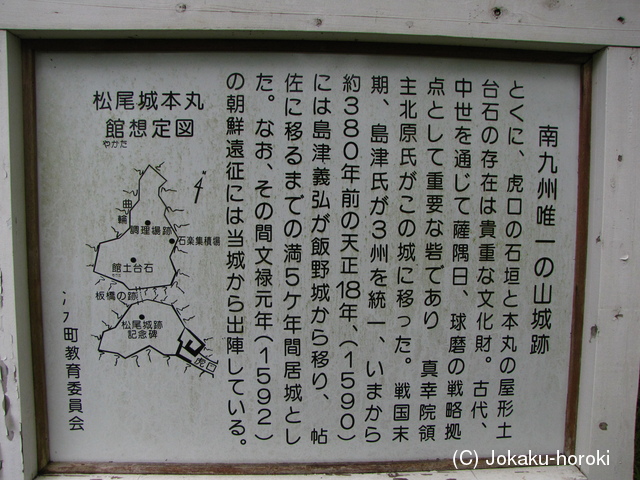 南九州唯一の山城跡
とくに、虎口の石垣と本丸の屋形土
台石の存在は貴重な文化財。古代、
中世を通じて薩隅日、球磨の戦略拠
点として重要な砦であり　真幸院領
主北原氏がこの城に移った。戦国末
期、島津氏が3州を統一、いまから
約380年前の天正18年、(1590)
には島津義弘が飯野城から移り、帖
佐に移るまでの満5ケ年間居城とし
た。なお、その間文禄元年(1592)
の朝鮮遠征には当城から出陣している。
松尾城本丸
館想定図
やかた
曲輪
調理場跡
石楽集積場
館土台石
板橋の跡
松尾城跡
記念碑
虎口
町教育委員会
(C) Jokaku-horoki